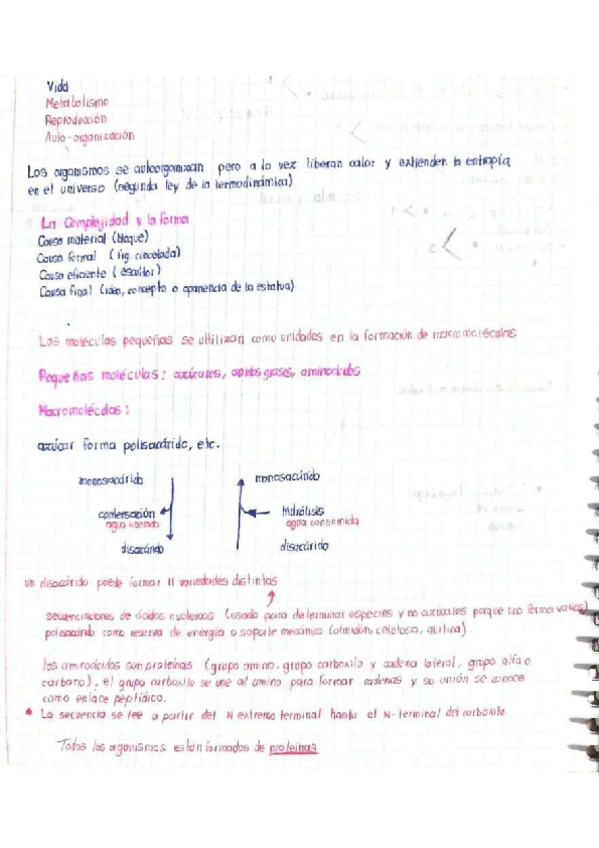 Vida
Metabolismo
Reproducción
Auto-organización
Los organismos se autoorganizan pero a la vez liberan calor y extienden la entropía
en el universo (segunda ley de la termodinámica)
La Complejidad y la forma
Causa material (bloque)
Causa formal (fig. cincelada)
Causa eficiente (escultor)
Causa final (idea, concepto o apariencia de la estatua)
Las moléculas pequeñas se utilizan como unidades en la formación de macromoléculas.
Pequeñas moléculas: azúcares, ácidos grasos, aminoácidos
Macromoléculas:
azúcar forma polisacárido, etc.
monosacárido
monosacárido
condensación
Hidrólisis
agua liberada
agua consumida
disacárido
disacárido
un disacárido puede formar 11 variedades distintas
secuenciaciones de ácidos nucleicos (usado para determinar especies y no azúcares porque uno forma varios)
polisacárido como reserva de energía o soporte mecánico (almidón, celulosa, quitina)
los aminoácidos son proteínas (grupo amino, grupo carboxilo y cadena lateral, grupo alfa o
carbono), el grupo carboxilo se une al amino para formar cadenas y su unión se conoce
como enlace peptídico.
* La secuencia se lee a partir del N extremo terminal hasta el N-terminal del carboxilo
Todos los organismos están formados de proteínas